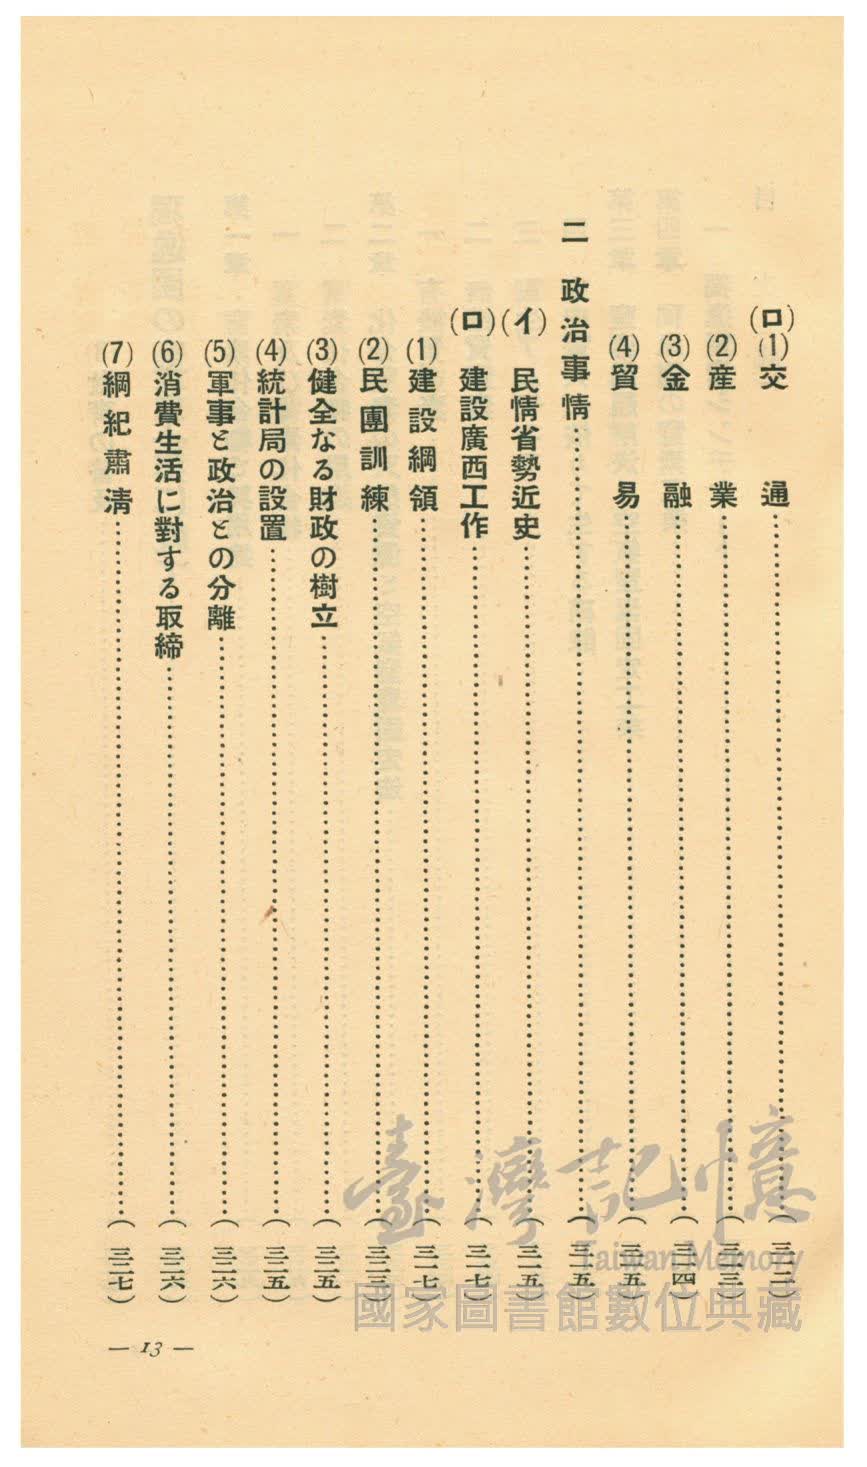 (ロ)(1)交通……………………(三一二)
(2)産業……………………(三一三)
(3)金融……………………(三一四)
(4)貿易……………………(三一五)
二 政治事情……………………(三一五)
(イ) 民情省勢近史……………………(三一五)
(ロ) 建設廣西工作……………………(三一七)
(1)建設綱領……………………(三一七)
(2)民團訓練……………………(三二三)
(3)健全なる財政の樹立……………………(三二五)
(4)統計局の設置……………………(三二五)
(5)軍事と政治との分離……………………(三二六)
(6)消費生活に對する取締……………………(三二六)
(7)綱紀肅淸……………………(三二七)
— 13 —
臺灣記憶
Taiwan Memory
國家圖書館數位典藏